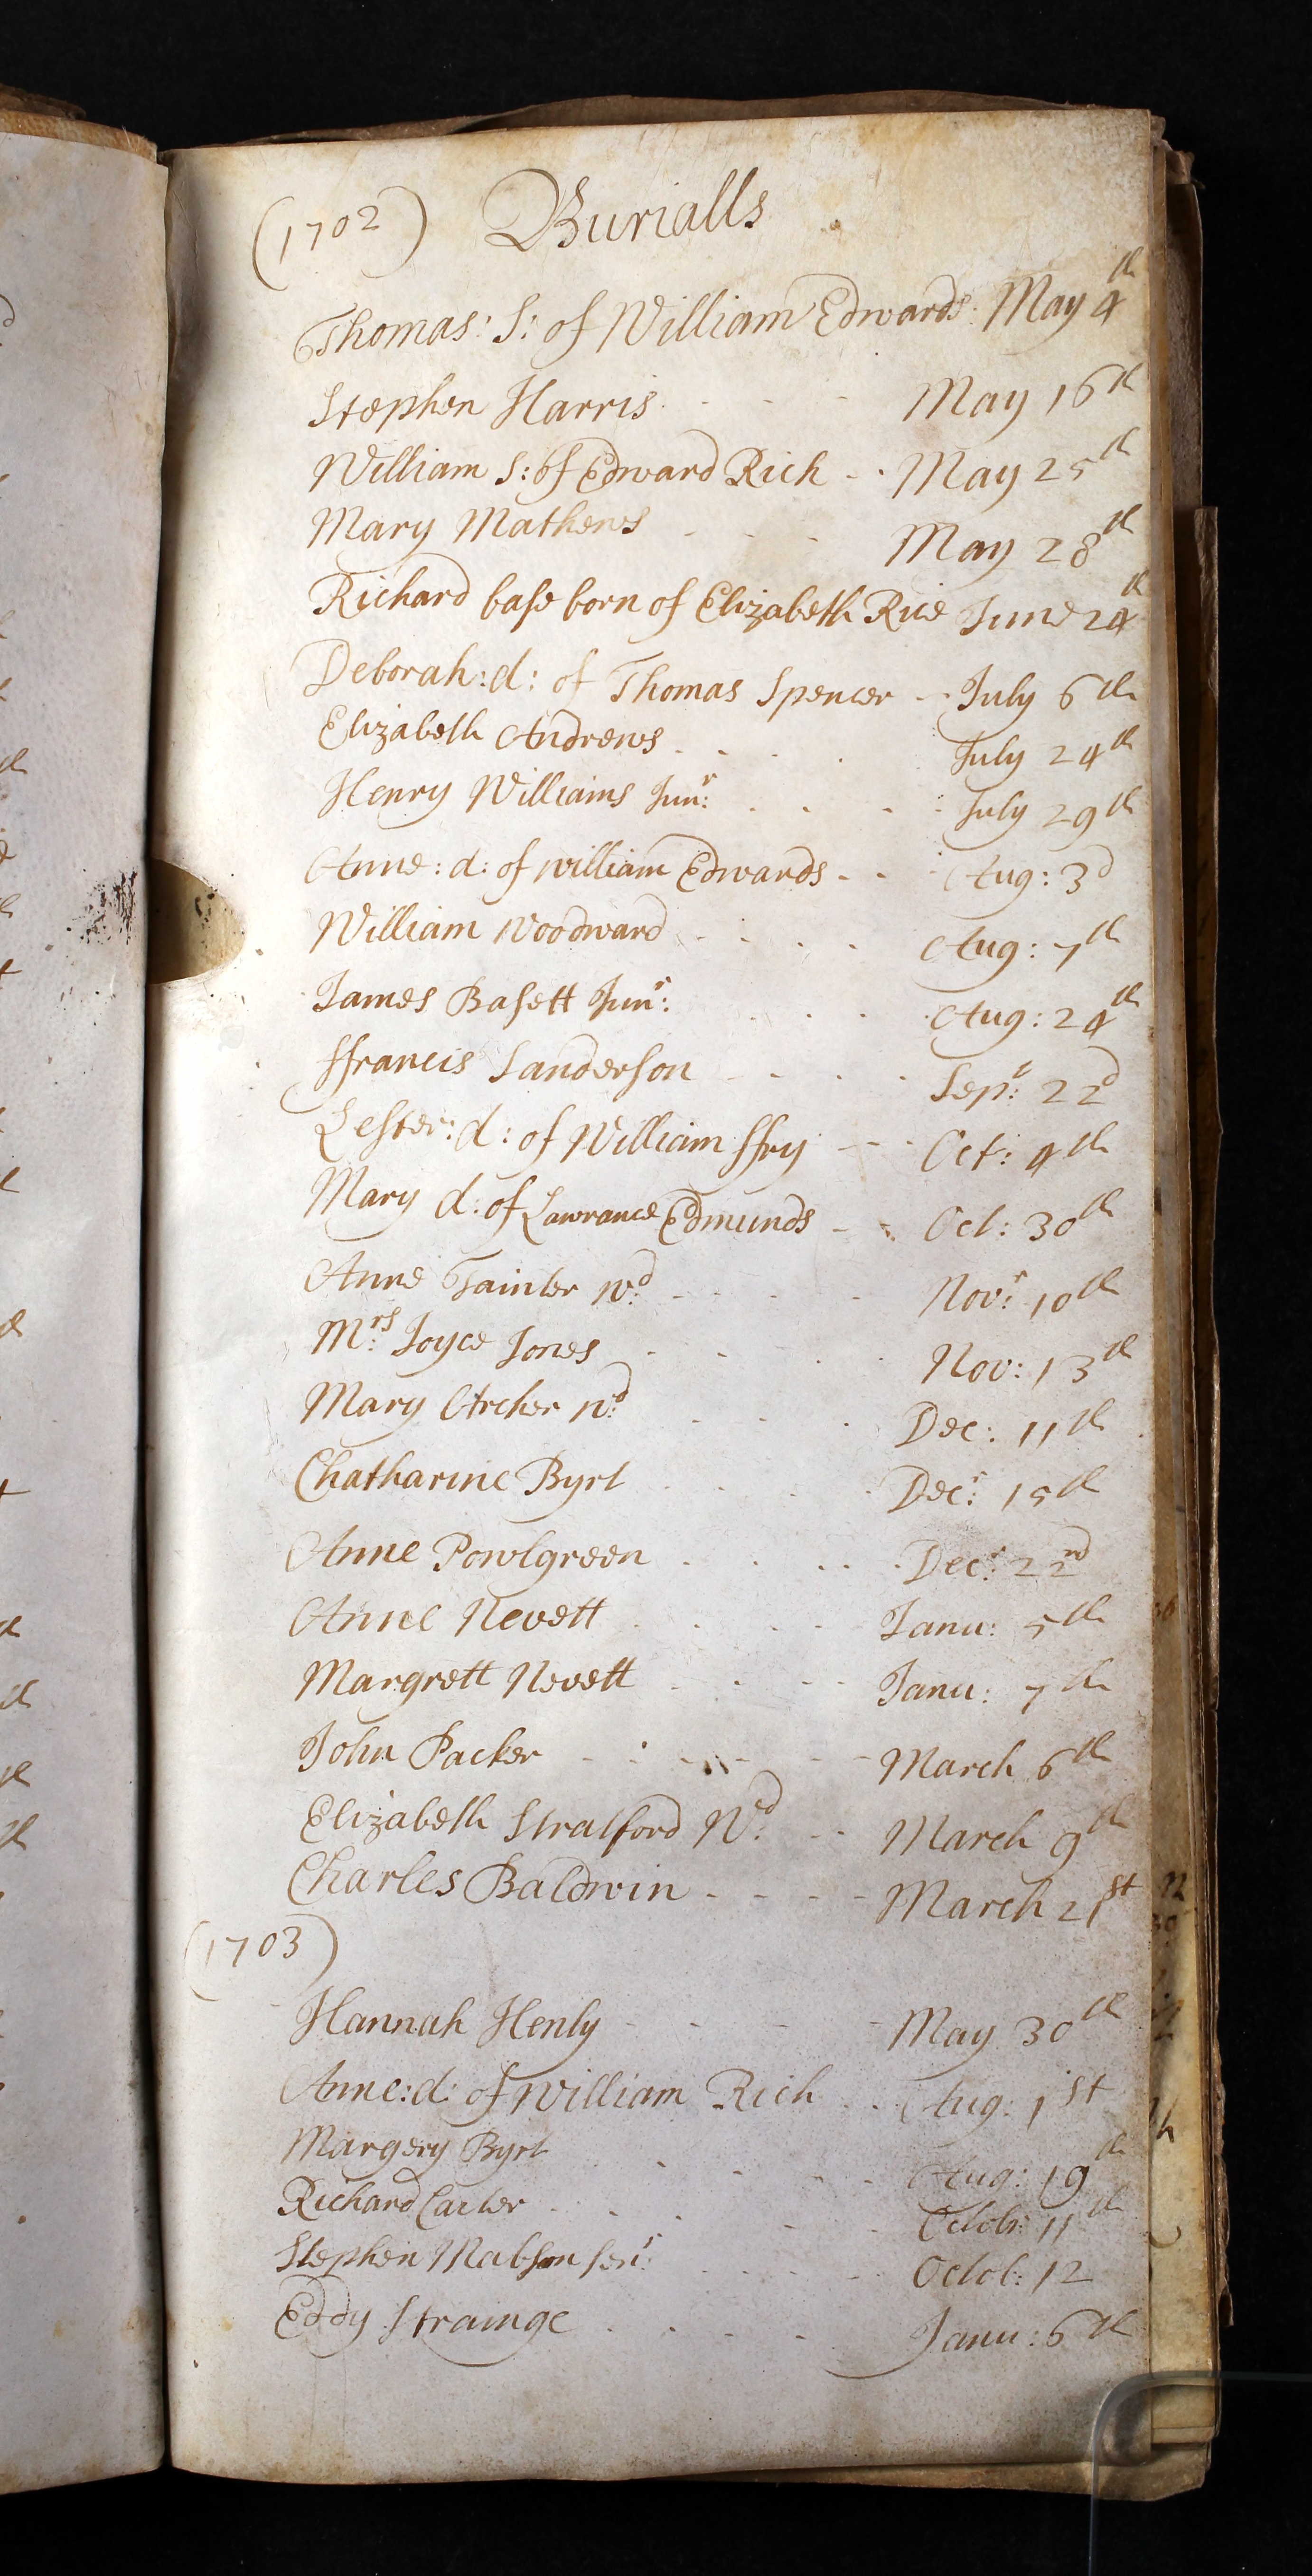 (1702) Burialls
Thomas: S: of William Edwards: May 4th
Stephen Harris - - - May 16th
William S: of Edward Rich - - May 25th
Mary Mathews - - - May 28th
Richard base born of Elizabeth Rice June 24th
Deborah: d: of Thomas Spencer - - July 6th
Elizabeth Andrews - - - July 24th
Henry Williams Junr: - - - July 29th
Anne: d: of william Edwards - - Aug: 3d
William Woodward - - - - Aug: 7th
James Basett Junr: - - - Aug: 24th
ffrancis Sanderson - - - - Sept: 22d
Lester: d: of William ffry - - Oct: 4th
Mary d: of Lawrance Edmunds - - Oct: 30th
Anne Tainter wd: - - - - Novr: 10th
Mrs: Joyce Jones - - - - Nov: 13th
Mary Archer wd: - - - Dec: 11th
Chatharine Byrt - - - - Decr: 15th
Anne Powlgreen - - - - Decr: 22nd
Anne Nevett - - - - Janu: 5th
Margrett Nevett - - - - Janu: 7th
John Packer - - - - - March 6th
Elizabeth Stratford Wd: - - March 9th
Charles Baldwin - - - - March 21st
(1703)
Hannah Henly - - - - May 30th
Anne: d: of William Rich - - Aug: 1st
Margery Byrt - - - - Aug: 19th
Richard Carter - - - - Octob: 11th
Stephen Mabson senr: - - - - Octob: 12
Eddy Strainge - - - - Janu: 6th